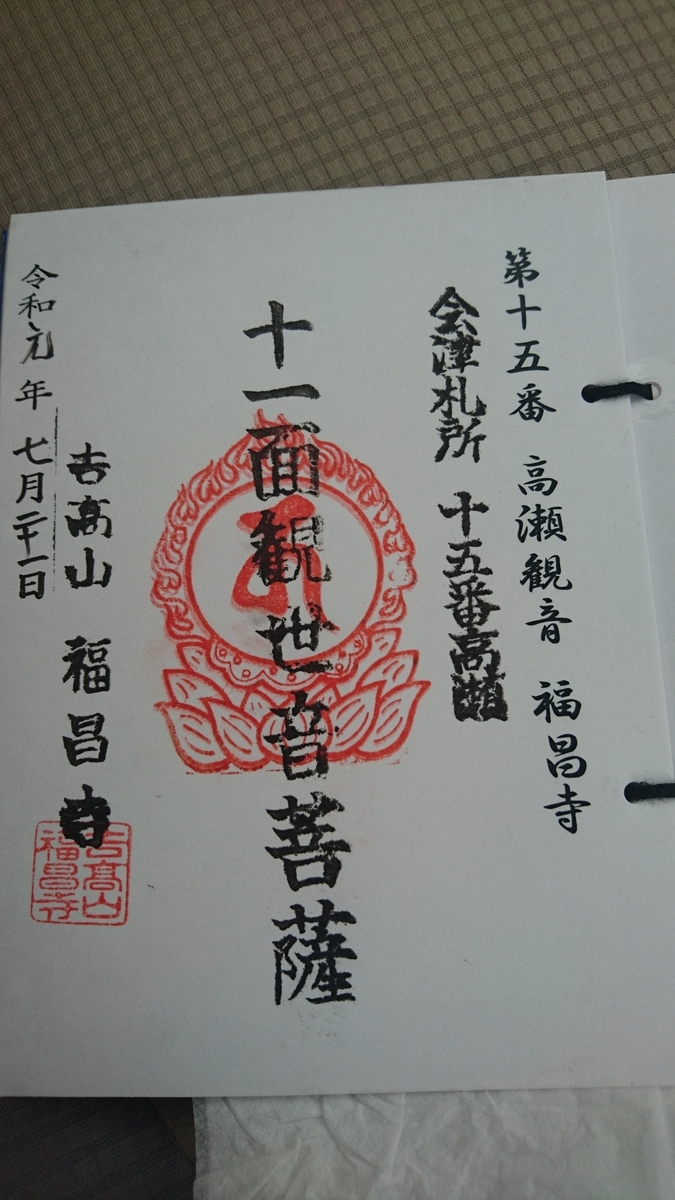 第十五番 高瀬観音 福昌寺
会津札所 十五番高瀬
十一面観世音菩薩
吉高山 福昌寺
吉高山
福昌寺
令和元年 七月二十一日